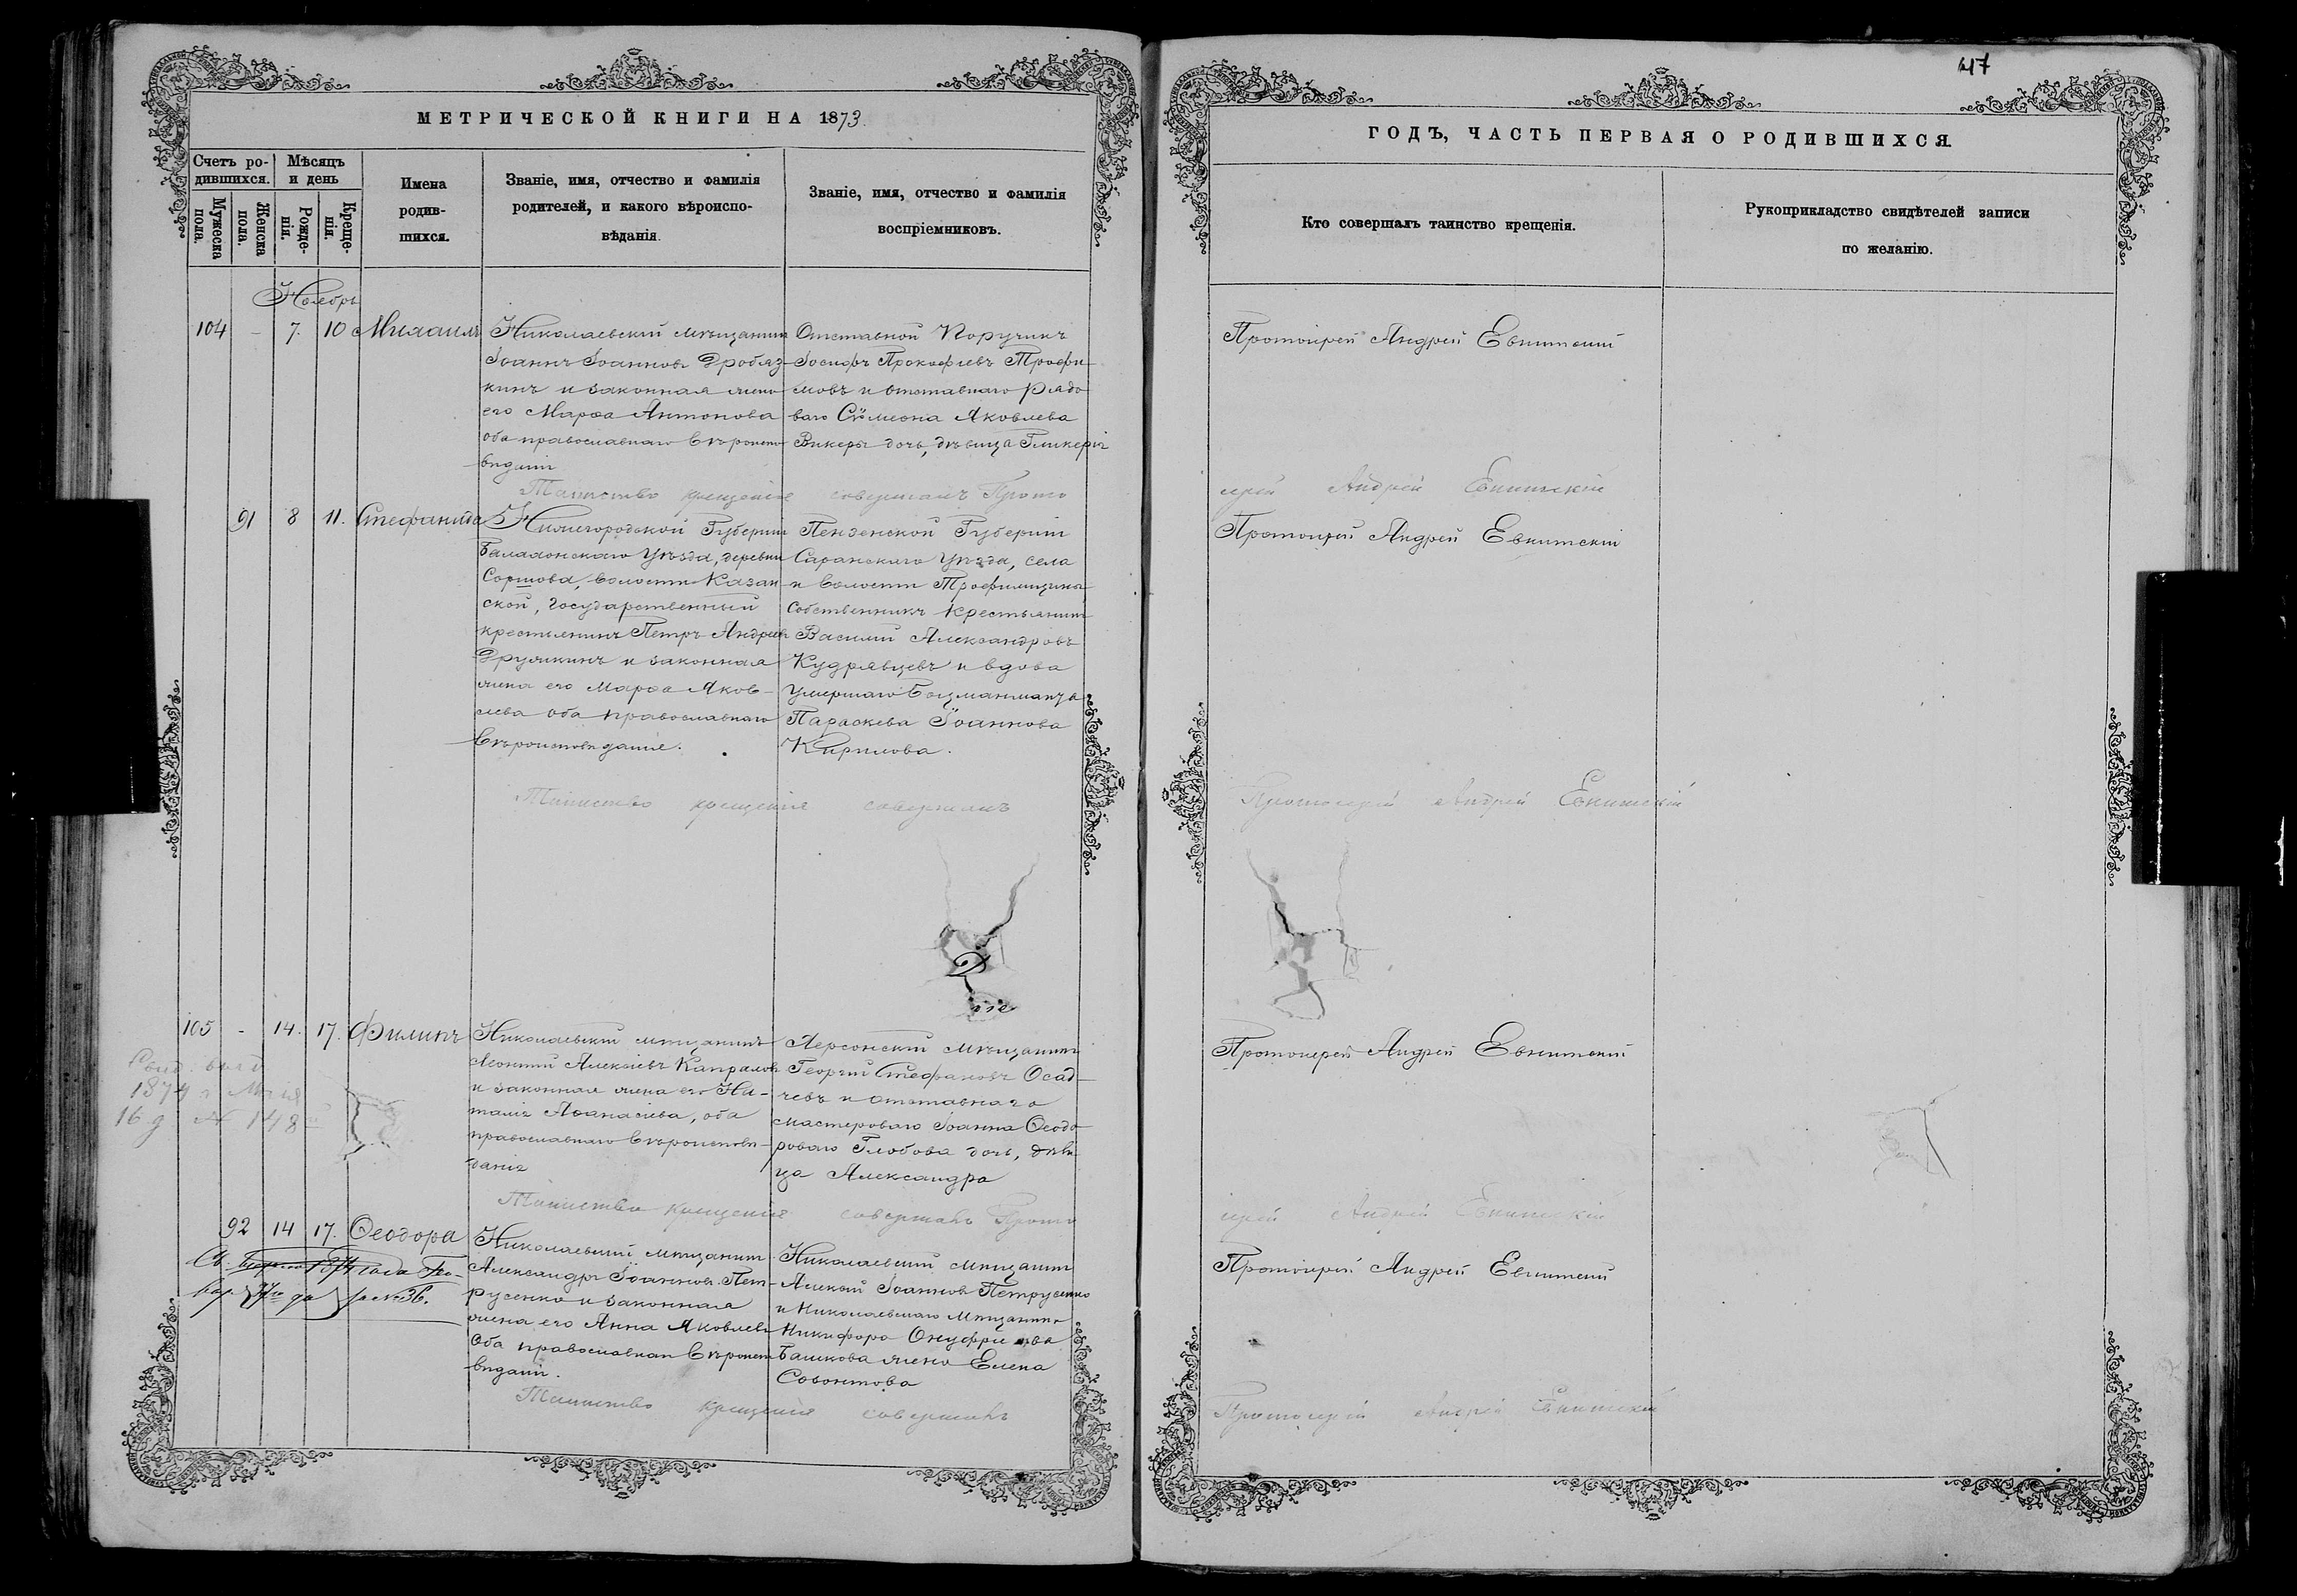 47
МЕТРИЧЕСКОЙ КНИГИ НА 1873.
Счетъ ро-
дившихся.
Мѣсяцъ
и день
Мужеска
пола.
Женска
пола.
Рожде-
нія.
Креще-
нія.
Имена
родив-
шихся.
Званіе, имя, отчество и фамилія
родителей, и какого вѣроиспо-
вѣданія.
Званіе, имя, отчество и фамилія
воспріемниковъ.
ГОДЪ, ЧАСТЬ ПЕРВАЯ О РОДИВШИХСЯ.
Кто совершалъ таинство крещенія.
Рукоприкладство свидѣтелей записи
по желанію.
Ноябрь
104 - 7. 10 Михаилъ
Николаевскій мѣщанинъ
Іоаннъ Іоанновъ Дробяз-
кинъ и законная жена
его Марѳа Антонова
оба православнаго вѣроиспо-
вѣданія
Отставной Поручикъ
Іосифъ Прокофіевъ Трофи-
мовъ и отставнаго рядо-
ваго Сѵмеона Яковлева
Викеры дочь, дѣвица Гликерія
Протоіерей Андрей Евнитскій
Таинство крещенія совершалъ Прото
іерей Андрей Евнитскій
91 8 11. Стефанида
Нижегородской Губерніи
Балахонскаго Уѣзда, деревни
Сормова, волости Казан-
ской, государственный
крестьянинъ Петръ Андреевъ
Дружкинъ и законная
жена его Марѳа Яков-
лева оба православнаго
вѣроисповѣданія.
Пензенской Губерніи
Саранскаго Уѣзда, села
и волости Трофимщины
собственникъ крестьянинъ
Василій Александровъ
Кудрявцевъ и вдова
умершаго Боцманмата
Параскева Іоаннова
Кирилова.
Протоіерей Андрей Евнитскій
Таинство крещенія совершалъ
Протоіерей Андрей Евнитскій
105 - 14. 17. Филипъ
Николаевскій мѣщанинъ
Леонтій Алексіевъ Капраловъ
и законная жена его На-
талія Аѳанасіева, оба
православнаго вѣроисповѣ-
данія
Херсонскій мѣщанинъ
Георгій Стефановъ Осад-
чевъ и отставнаго
мастероваго Іоанна Ѳеодо-
роваго Глобова дочь, дѣви-
ца Александра
Протоіерей Андрей Евнитскій
1874 г.
16 д № 148
Таинство крещенія совершалъ Прото
іерей Андрей Евнитскій
92 14 17. Ѳеодора
Николаевскій мѣщанинъ
Александръ Іоанновъ Пет-
русенко и законная
жена его Анна Яковлева
оба православнаго вѣроиспо-
вѣданія.
Николаевскій мѣщанинъ
Алексій Іоанновъ Петрусенко
и Николаевскаго мѣщанина
Никифора Онуфріева
Башкова жена Елена
Савонтова
Протоіерей Андрей Евнитскій
1874 года
за № 36.
Таинство крещенія совершалъ
Протоіерей Андрей Евнитскій